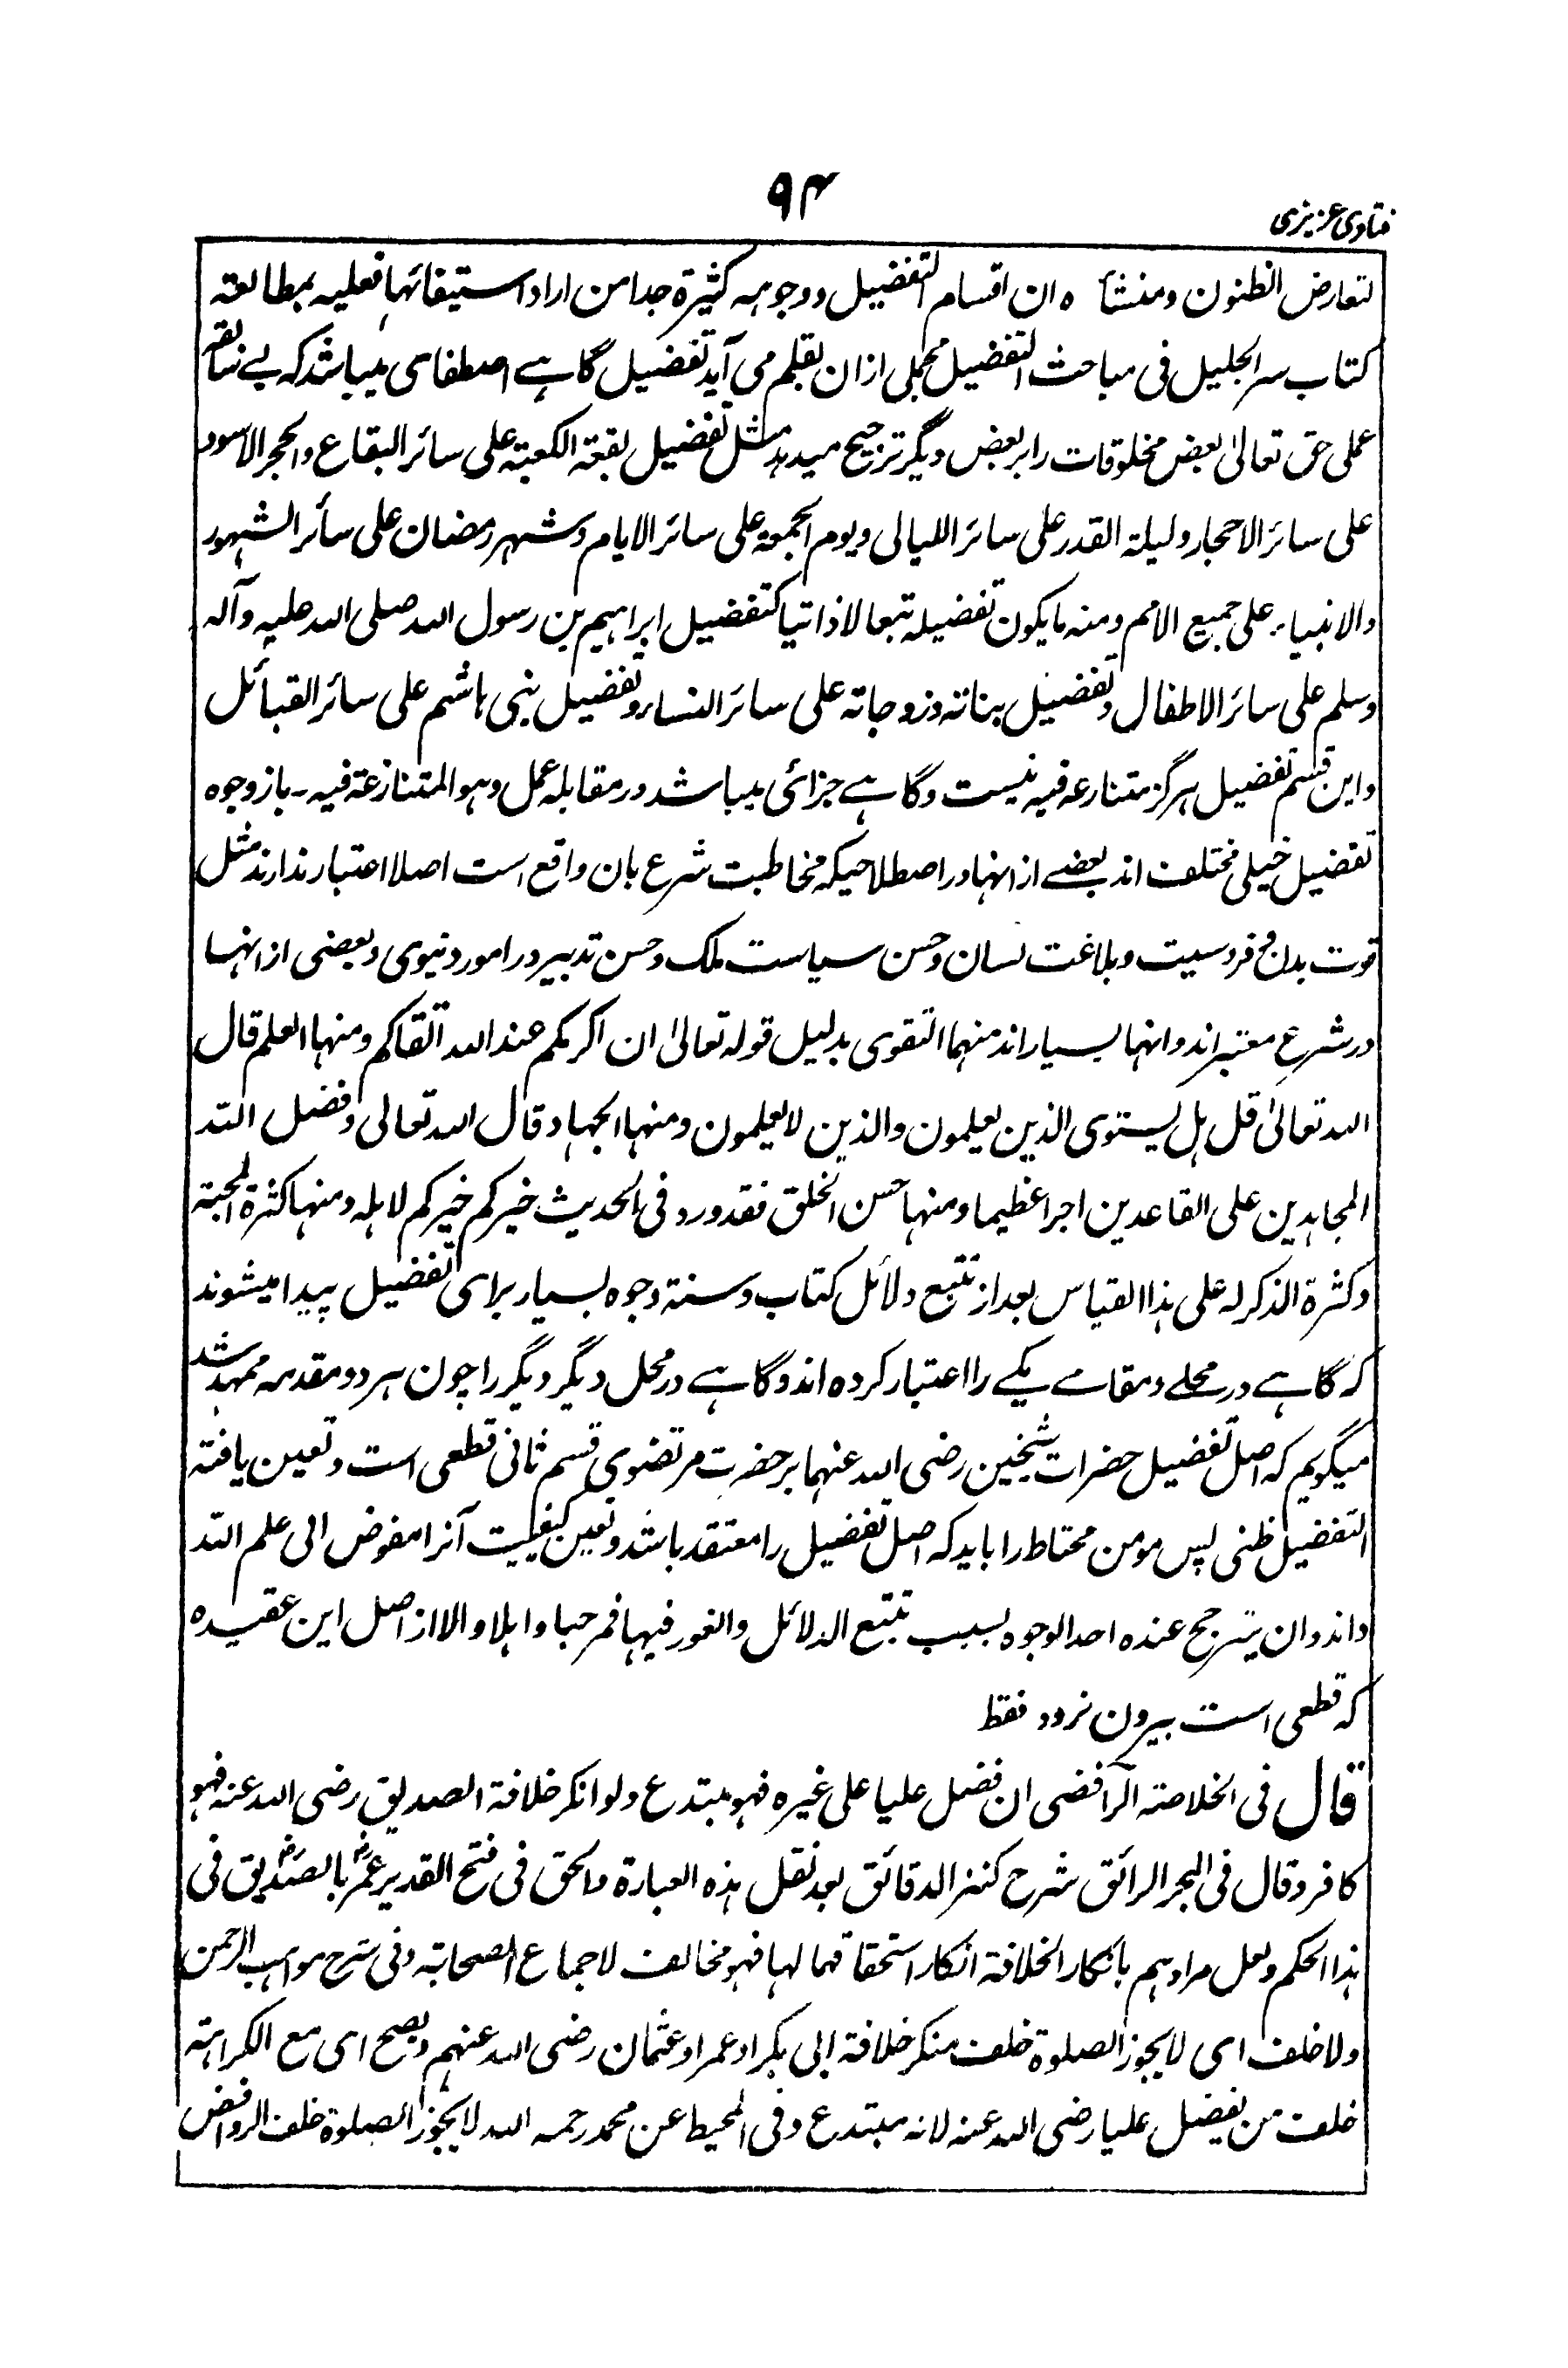 ۹۴
فتاوی عزیزی
لتعارض الظنون ومنشأہ ان اقسام التفضیل ووجوہہ کثیرۃ جدا من اراد استیفائہا فعلیہ بمطالعۃ
کتاب سر الجلیل فی مباحث التفضیل مجملی ازان بقلم می آید تفضیل گاہے اصطفای میباشد کہ بے سابقہ
عملی حق تعالیٰ بعض مخلوقات را بر بعض دیگر ترجیح میدہد مثل تفضیل بقعۃ الکعبۃ علی سائر البقاع والحجر الاسود
علی سائر الاحجار ولیلۃ القدر علی سائر اللیالی ویوم الجمعۃ علی سائر الایام وشہر رمضان علی سائر الشہور
والانبیاء علی جمیع الامم ومنہ ما یکون تفضیلہ تبعا لا ذاتیا کتفضیل ابراہیم بن رسول اللہ صلی اللہ علیہ وآلہ
وسلم علی سائر الاطفال وتفضیل بناتہ وزوجاتہ علی سائر النساء وتفضیل بنی ہاشم علی سائر القبائل
واین قسم تفضیل ہرگز متنازعہ فیہ نیست وگاہے جزائی میباشد در مقابلہ عمل وہو المتنازعۃ فیہ۔ باز وجوہ
تفضیل خیلی مختلف اند بعضے از انہا در اصطلاحیکہ مخاطبت شرع بان واقع است اصلا اعتبار ندارند مثل
قوت بدن وفروسیت وبلاغت لسان وحسن سیاست ملک وحسن تدبیر در امور دنیوی وبعضی از انہا
در شرع معتبر اند وانہا بسیار اند منہما التقوی بدلیل قولہ تعالیٰ ان اکرمکم عند اللہ اتقاکم ومنہا العلم قال
اللہ تعالیٰ قل ہل یستوی الذین یعلمون والذین لا یعلمون ومنہا الجہاد قال اللہ تعالی وفضل اللہ
المجاہدین علی القاعدین اجرا عظیما ومنہا حسن الخلق فقد ورد فی الحدیث خیرکم خیرکم لاہلہ ومنہا کثرۃ المحبۃ
وکثرۃ الذکر لہ علی ہذا القیاس بعد از تتبع دلائل کتاب وسنۃ وجوہ بسیار برای تفضیل پیدا میشوند
کہ گاہے در محلے ومقامے یکے را اعتبار کردہ اند وگاہے در محل دیگر دیگر را چون ہر دو مقدمہ ممہد شد
میگویم کہ اصل تفضیل حضرات شیخین رضی اللہ عنہما بر حضرت مرتضوی قسم ثانی قطعی است وتعین یافتہ
التفضیل ظنی پس مومن محتاط را باید کہ اصل تفضیل را معتقد باشد وتعین کیفیت آنرا مفوض الی علم اللہ
داند وان یترجح عندہ احد الوجوہ بسبب تتبع الدلائل والغور فیہا فمرحبا واہلا والا از اصل این عقیدہ
کہ قطعی است بیرون نرود فقط
قال فی الخلاصۃ الرافضی ان فضل علیا علی غیرہ فہو مبتدع ولو انکر خلافۃ الصدیق رضی اللہ عنہ فہو
کافر وقال فی البحر الرائق شرح کنز الدقائق بعد نقل ہذہ العبارۃ والحق فی فتح القدیر عمرؓ بالصدیقؓ فی
ہذا الحکم ولعل مرادہم بانکار الخلافۃ انکار استحقاقہما لہا فہو مخالف لاجماع الصحابۃ وفی شرح مواہب الرحمن
ولا خلف ای لا یجوز الصلوۃ خلف منکر خلافۃ ابی بکر او عمر او عثمان رضی اللہ عنہم ویصح ای مع الکراہتہ
خلف من یفضل علیا رضی اللہ عنہ لانہ مبتدع وفی المحیط عن محمد رحمہ اللہ لا یجوز الصلوۃ خلف الروافض